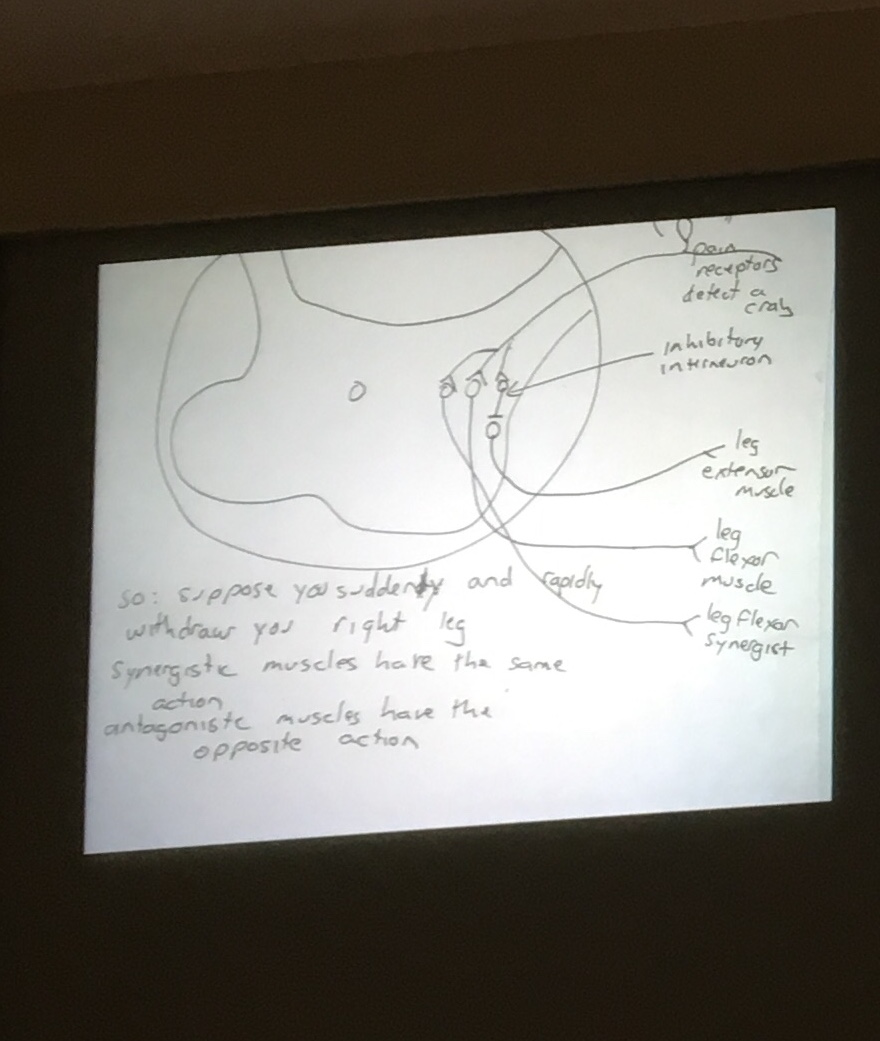 pain
receptors
detect a
crab
inhibitory
interneuron
leg
extensor
muscle
leg
flexor
muscle
leg flexor
synergist
so: suppose you suddenly and rapidly
withdraw you right leg
synergistic muscles have the same
action
antagonistc muscles have the
opposite action